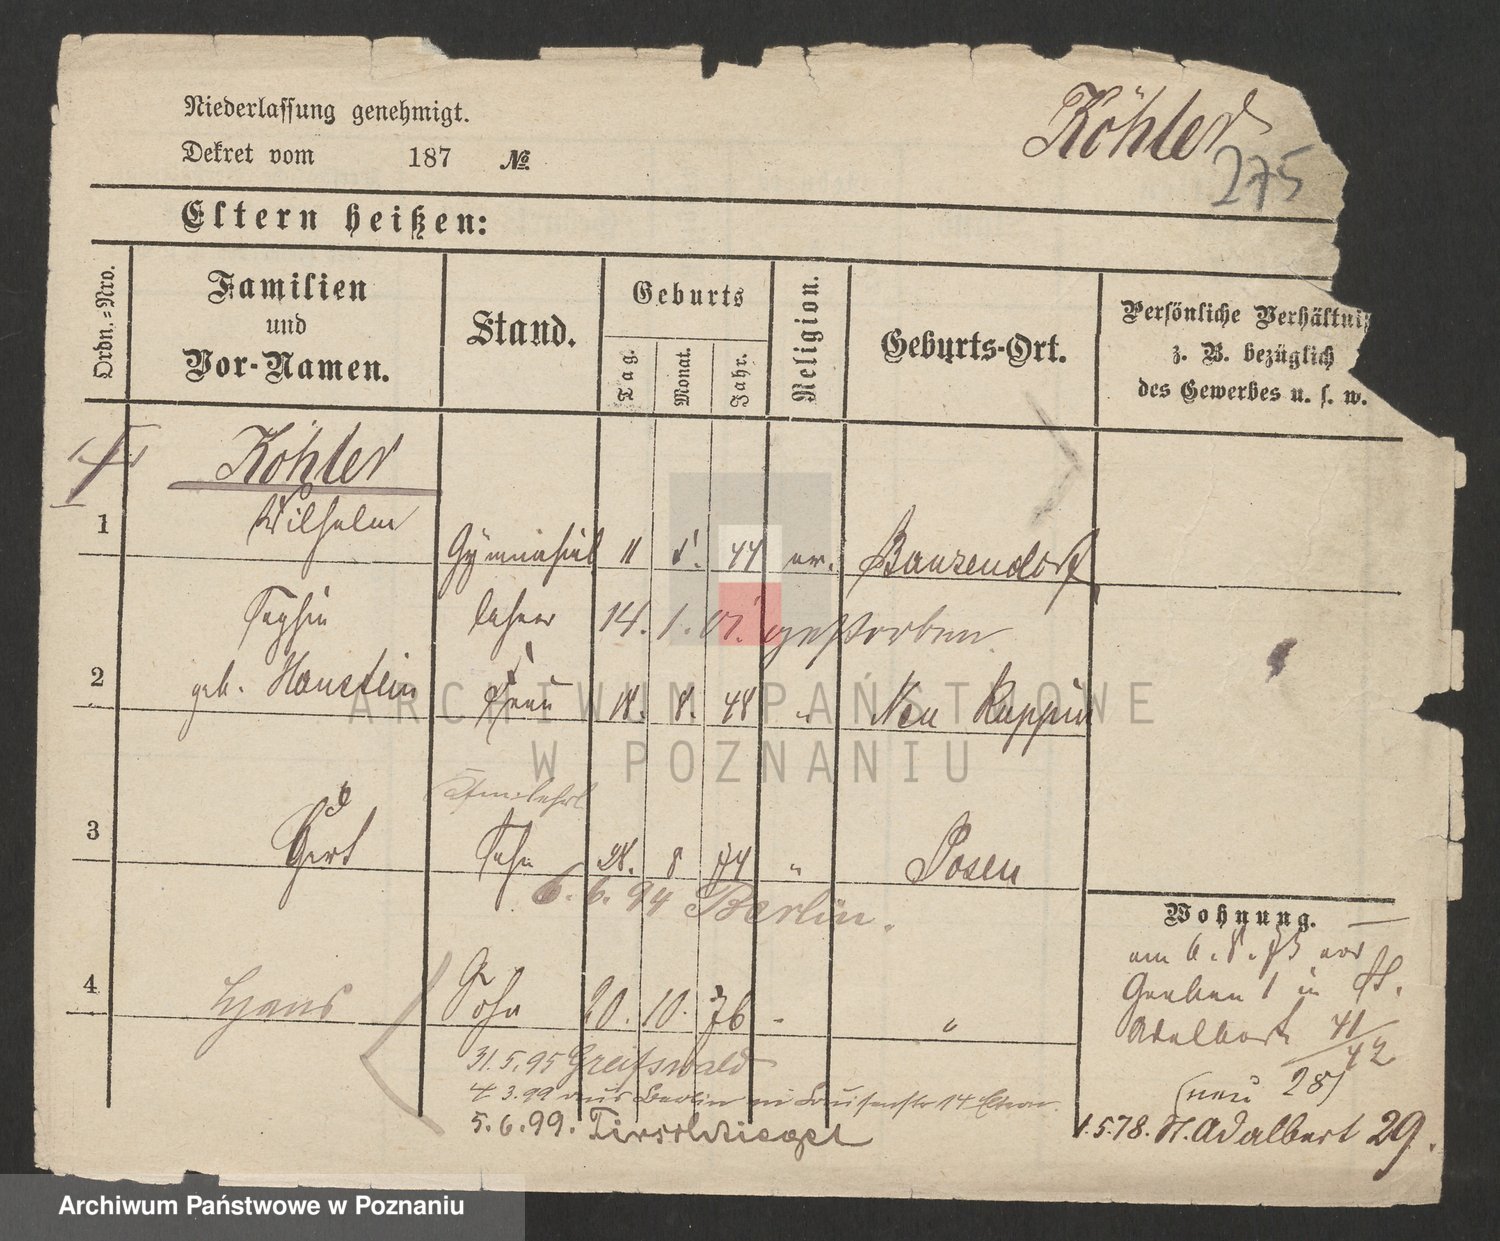 Niederlassung genehmigt.
Dekret vom 187 №
Köhler
275
Eltern heißen:
Ordn.-Nro.
Familien
und
Vor-Namen.
Stand.
Geburts
Tag.
Monat.
Jahr.
Religion.
Geburts-Ort.
Persönliche Verhältni
z. B. bezüglich
des Gewerbes u. s. w.
Köhler
1 Wilhelm
Gymnasial 11 44 ev. Bauzendorf
Sophie lehrer 14. 1. 01. gestorben
2 geb. Haustein Frau 18. 8. 48 " Neu Ruppin
3 Gert Sohn 28. 8 74 " Posen
6. 6. 94 Berlin.
4 Hans Sohn 20. 10. 76 - "
31.5.95 Greifswald
4.3.99 aus Berlin in Louisenstr 14 Eltern.
5.6.99. Tirschtiegel
Wohnung.
am 6. 8. 75 vor
Graben 1 in St.
Adalbert 41/42
(neu 28)
1.5.78. St. Adalbert 29.
ARCHIWUM PAŃSTWOWE
W POZNANIU
Archiwum Państwowe w Poznaniu